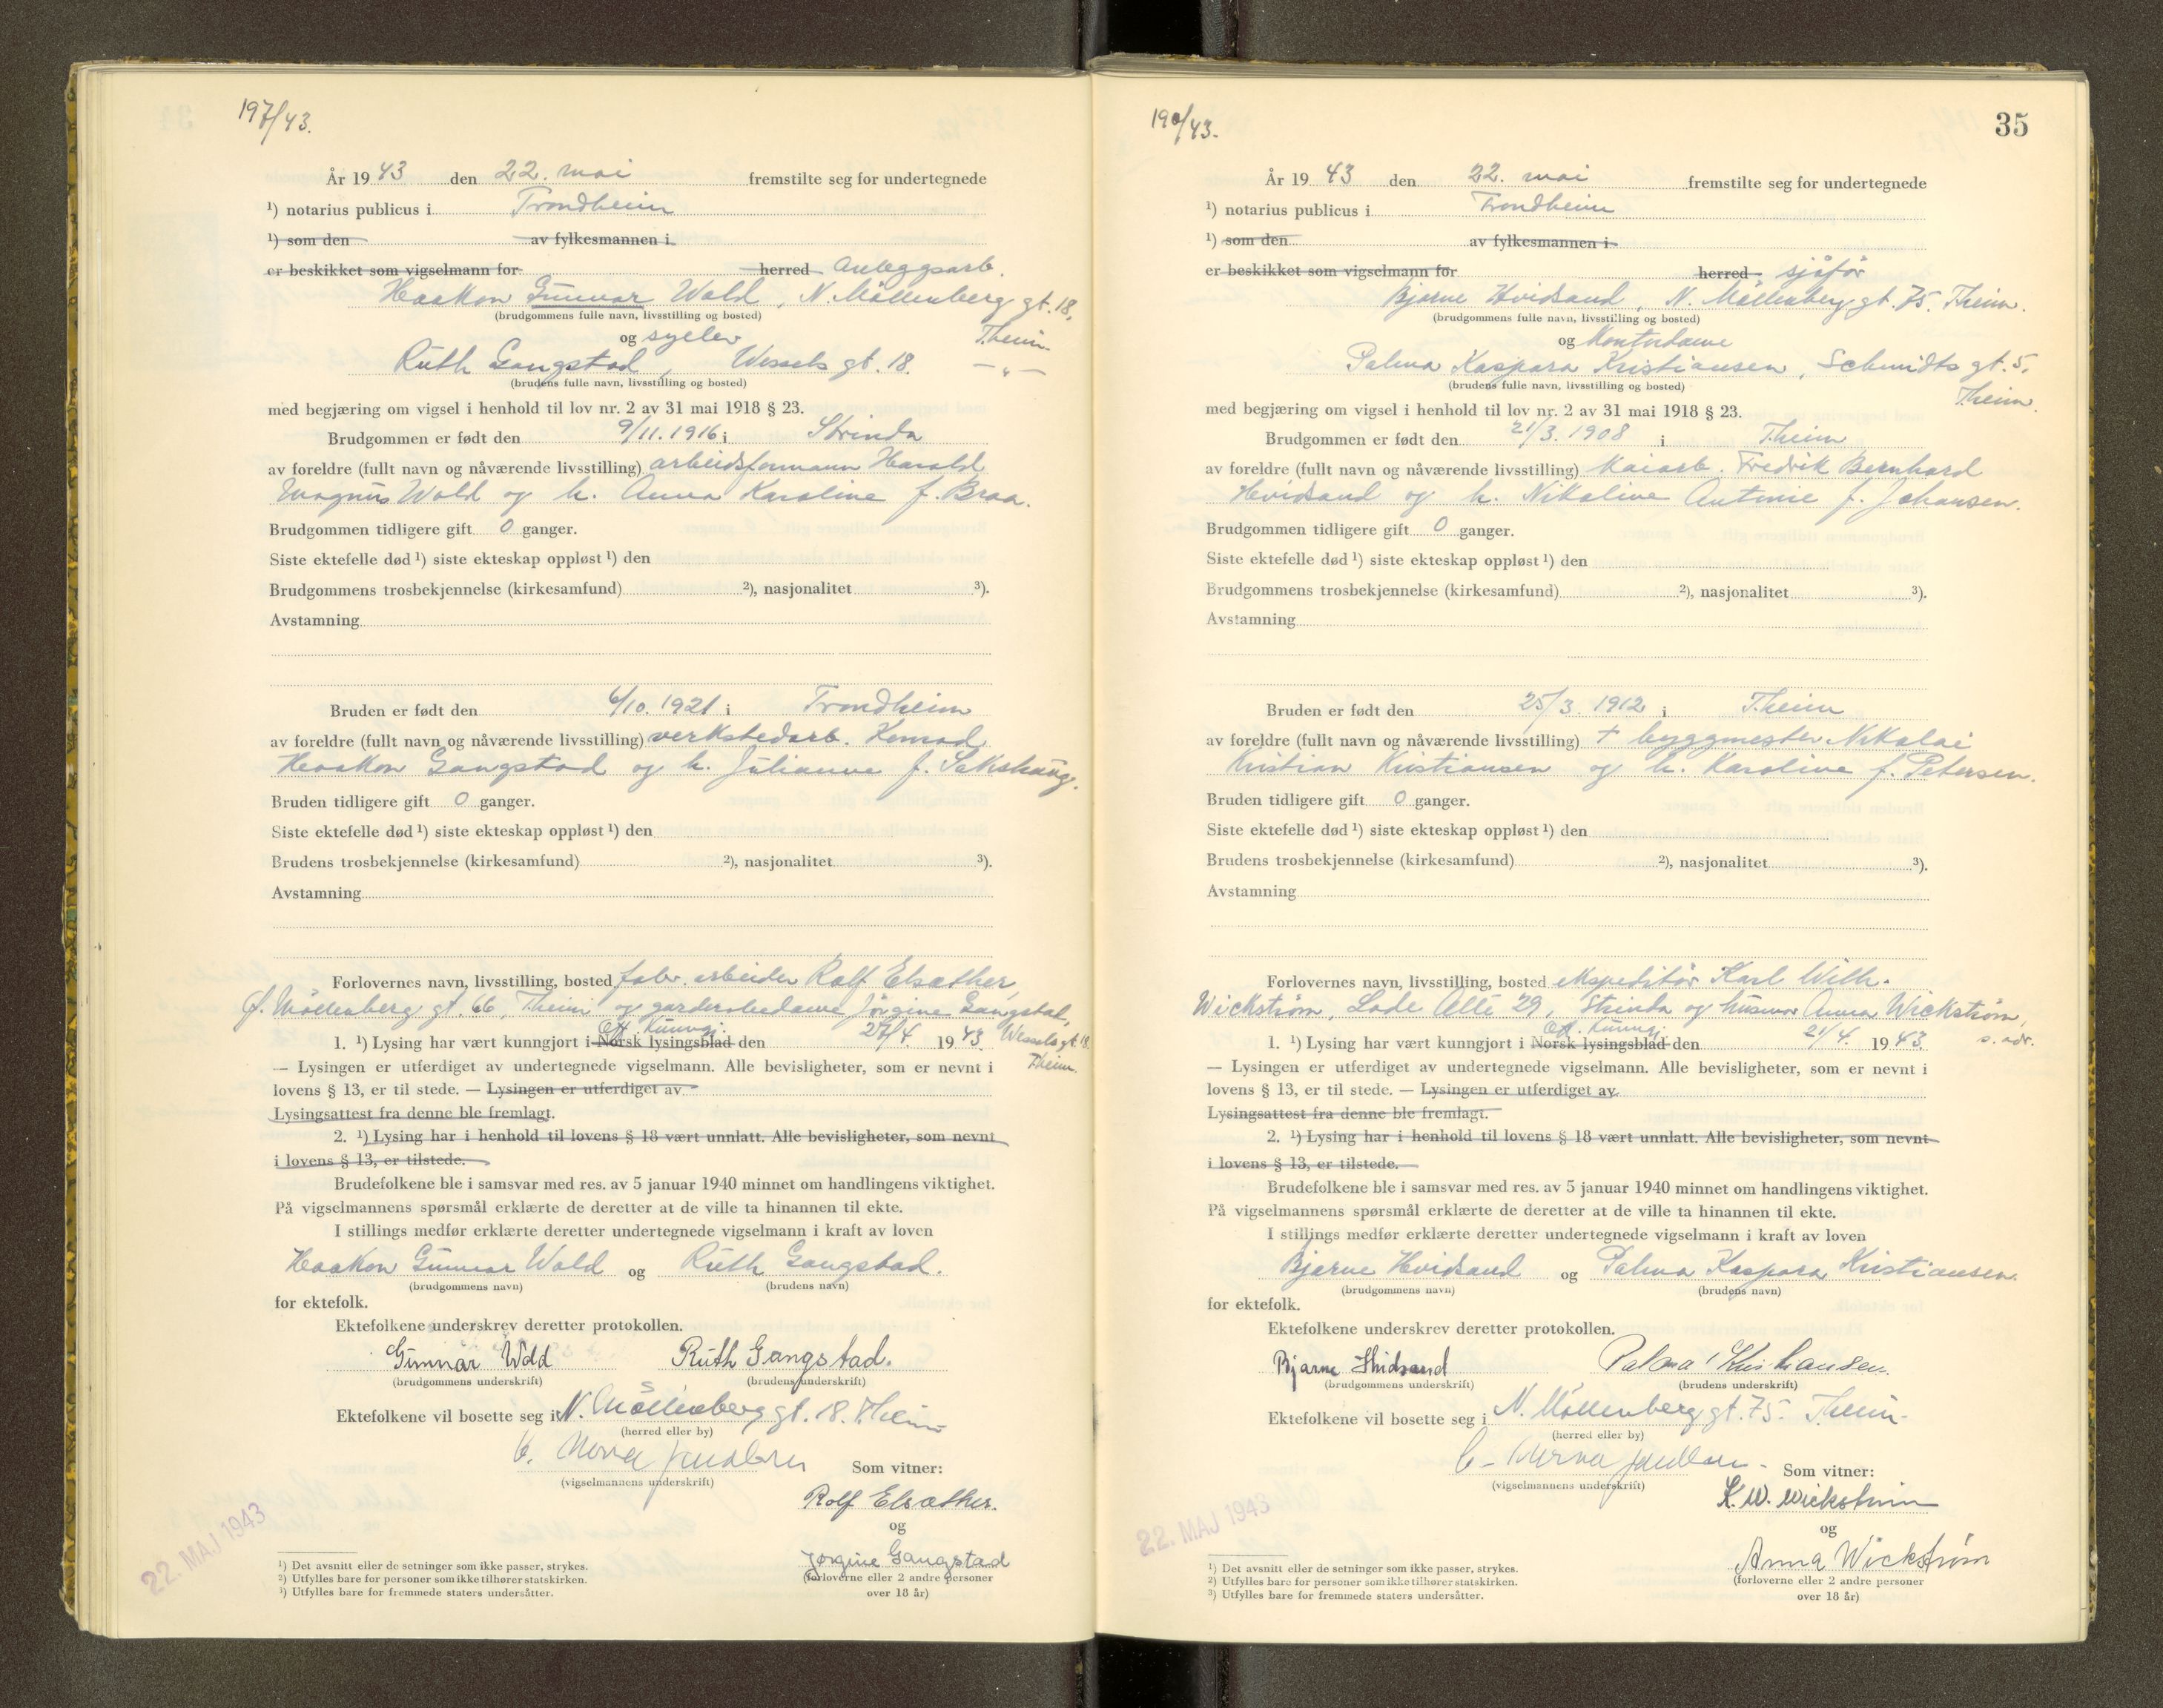 197/43.
År 1943 den 22. mai fremstilte seg for undertegnede
¹) notarius publicus i Trondheim
¹) som den av fylkesmannen i
er beskikket som vigselmann for herred Anleggsarb.
Haakon Gunnar Wold, N. Möllenberg gt. 18,
(brudgommens fulle navn, livsstilling og bosted)
T.heim
og syerske
Ruth Gangstad, Wessels gt. 18. — „ —
(brudens fulle navn, livsstilling og bosted)
med begjæring om vigsel i henhold til lov nr. 2 av 31 mai 1918 § 23.
Brudgommen er født den 9/11. 1916 i Strinda
av foreldre (fullt navn og nåværende livsstilling) arbeidsformann Harald
Magnus Wold og h. Anna Karoline f. Braa.
Brudgommen tidligere gift 0 ganger.
Siste ektefelle død ¹) siste ekteskap oppløst ¹) den
Brudgommens trosbekjennelse (kirkesamfund) ²), nasjonalitet ³).
Avstamning
Bruden er født den 6/10. 1921 i Trondheim
av foreldre (fullt navn og nåværende livsstilling) verkstedarb. Konrad
Haakon Gangstad og h. Julianne f. Sakshaug.
Bruden tidligere gift 0 ganger.
Siste ektefelle død ¹) siste ekteskap oppløst ¹) den
Brudens trosbekjennelse (kirkesamfund) ²), nasjonalitet ³).
Avstamning
Forlovernes navn, livsstilling, bosted fabr. arbeider Rolf Elsæther,
Ø. Möllenberg gt. 66, T.heim og garderobedame Jörgine Gangstad,
Off. Kunngj.
1. ¹) Lysing har vært kunngjort i Norsk lysingsblad den 27/4. 1943. Wessels gt. 18.
T.heim.
— Lysingen er utferdiget av undertegnede vigselmann. Alle bevisligheter, som er nevnt i
lovens § 13, er til stede. — Lysingen er utferdiget av
Lysingsattest fra denne ble fremlagt.
2. ¹) Lysing har i henhold til lovens § 18 vært unnlatt. Alle bevisligheter, som nevnt
i lovens § 13, er tilstede.
Brudefolkene ble i samsvar med res. av 5 januar 1940 minnet om handlingens viktighet.
På vigselmannens spørsmål erklærte de deretter at de ville ta hinannen til ekte.
I stillings medfør erklærte deretter undertegnede vigselmann i kraft av loven
Haakon Gunnar Wold og Ruth Gangstad.
(brudgommens navn) (brudens navn)
for ektefolk.
Ektefolkene underskrev deretter protokollen.
Gunnar Wold Ruth Gangstad.
(brudgommens underskrift) (brudens underskrift)
Ektefolkene vil bosette seg i N. Möllenberg gt. 18. T.heim
(herred eller by)
Som vitner:
(vigselmannens underskrift)
Rolf Elsæther.
og
Jørgine Gangstad
(forloverne eller 2 andre personer
over 18 år)
22. MAJ 1943
¹) Det avsnitt eller de setninger som ikke passer, strykes.
²) Utfylles bare for personer som ikke tilhører statskirken.
³) Utfylles bare for fremmede staters undersåtter.
190/43.
35
År 1943 den 22. mai fremstilte seg for undertegnede
¹) notarius publicus i Trondheim
¹) som den av fylkesmannen i
er beskikket som vigselmann for herred sjåför
Bjarne Hvidsand, N. Möllenberg gt. 75. T.heim.
(brudgommens fulle navn, livsstilling og bosted)
og Kontordame
Palma Kaspara Kristiansen, Schmidts gt. 5,
(brudens fulle navn, livsstilling og bosted)
T.heim.
med begjæring om vigsel i henhold til lov nr. 2 av 31 mai 1918 § 23.
Brudgommen er født den 21/3. 1908 i T.heim
av foreldre (fullt navn og nåværende livsstilling) Kaiarb. Fredrik Bernhard
Hvidsand og h. Nikoline Antonie f. Johansen.
Brudgommen tidligere gift 0 ganger.
Siste ektefelle død ¹) siste ekteskap oppløst ¹) den
Brudgommens trosbekjennelse (kirkesamfund) ²), nasjonalitet ³).
Avstamning
Bruden er født den 25/3. 1912 i T.heim
av foreldre (fullt navn og nåværende livsstilling) † byggmester Nikolai
Kristian Kristiansen og h. Karoline f. Petersen.
Bruden tidligere gift 0 ganger.
Siste ektefelle død ¹) siste ekteskap oppløst ¹) den
Brudens trosbekjennelse (kirkesamfund) ²), nasjonalitet ³).
Avstamning
Forlovernes navn, livsstilling, bosted ekspeditör Karl Wilh.
Wickström, Lade Allé 29, Strinda og husmor Anna Wickström,
Off. Kunngj.
1. ¹) Lysing har vært kunngjort i Norsk lysingsblad den 21/4. 1943. s. adr.
— Lysingen er utferdiget av undertegnede vigselmann. Alle bevisligheter, som er nevnt i
lovens § 13, er til stede. — Lysingen er utferdiget av
Lysingsattest fra denne ble fremlagt.
2. ¹) Lysing har i henhold til lovens § 18 vært unnlatt. Alle bevisligheter, som nevnt
i lovens § 13, er tilstede.
Brudefolkene ble i samsvar med res. av 5 januar 1940 minnet om handlingens viktighet.
På vigselmannens spørsmål erklærte de deretter at de ville ta hinannen til ekte.
I stillings medfør erklærte deretter undertegnede vigselmann i kraft av loven
Bjarne Hvidsand og Palma Kaspara Kristiansen.
(brudgommens navn) (brudens navn)
for ektefolk.
Ektefolkene underskrev deretter protokollen.
Bjarne Hvidsand Palma Kristiansen.
(brudgommens underskrift) (brudens underskrift)
Ektefolkene vil bosette seg i N. Möllenberg gt. 75. T.heim.
(herred eller by)
Som vitner:
(vigselmannens underskrift)
K. W. Wickstrøm
og
Anna Wickstrøm
(forloverne eller 2 andre personer
over 18 år)
22. MAJ 1943
¹) Det avsnitt eller de setninger som ikke passer, strykes.
²) Utfylles bare for personer som ikke tilhører statskirken.
³) Utfylles bare for fremmede staters undersåtter.